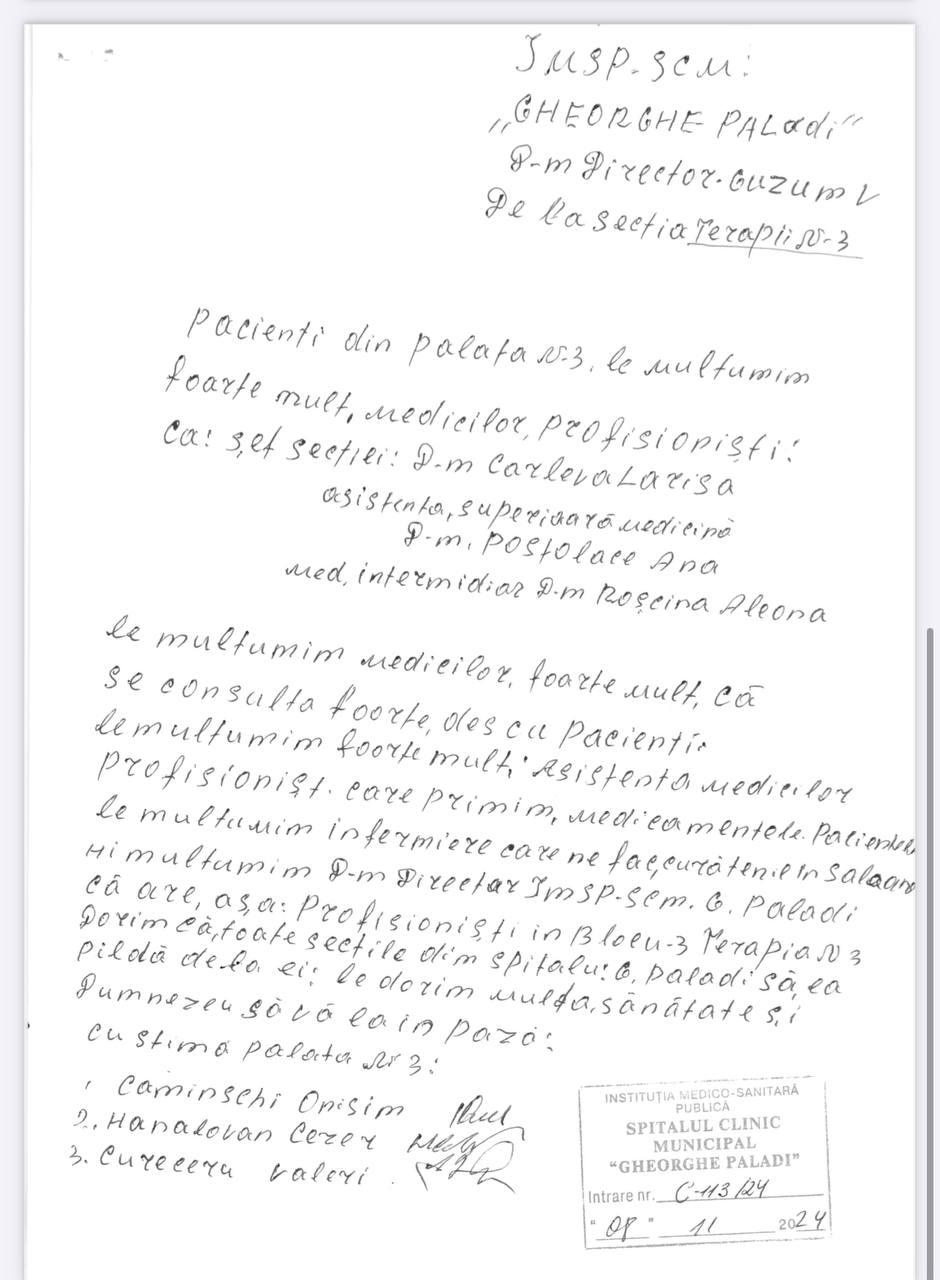 IMSP-SCM:
„GHEORGHE PALadi“
D-m Director. GUZUM V
De la sectia Terapii N-3
Pacienti din palata N-3. le multumim
foarte mult, medicilor, profisioniști:
Ca: șef secției: D-m Carleva Larisa
asistenta, superioară medicină
D-m. Postolace Ana
Med, intermidiar D-m Roșcina Aleona
le multumim medicilor, foarte mult, că
se consulta foorte, des cu pacienti:
le multumim foorte mult; Asistenta medicilor
profisionișt. care primim, medicamentele. Pacientele
le multumim infermiere care ne fac, curătenie in Saloane
Hi multumim D-m Director IMSP-SCM. G. Paladi
că are, așa: Profisioniști in Blocu-3 Terapia N3
Dorim că, toate sectile dim spitalu: G. Paladi să, ea
pildă de la ei: le dorim multa, sănătate și
Dumnezeu să vă ea in pază:
cu stimă palata Nr 3:
1 Caminschi Onisim
2. Hanalovan Cerer
3. Cureceru Valeri.
INSTITUȚIA MEDICO-SANITARĂ
PUBLICĂ
SPITALUL CLINIC
MUNICIPAL
“GHEORGHE PALADI”
Intrare nr. C-113/24
“ 08 ” 11 2024